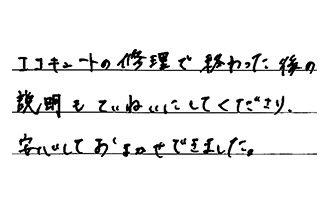 エコキュートの修理で終わった後の
説明もていねいにしてくださり、
安心しておまかせできました。